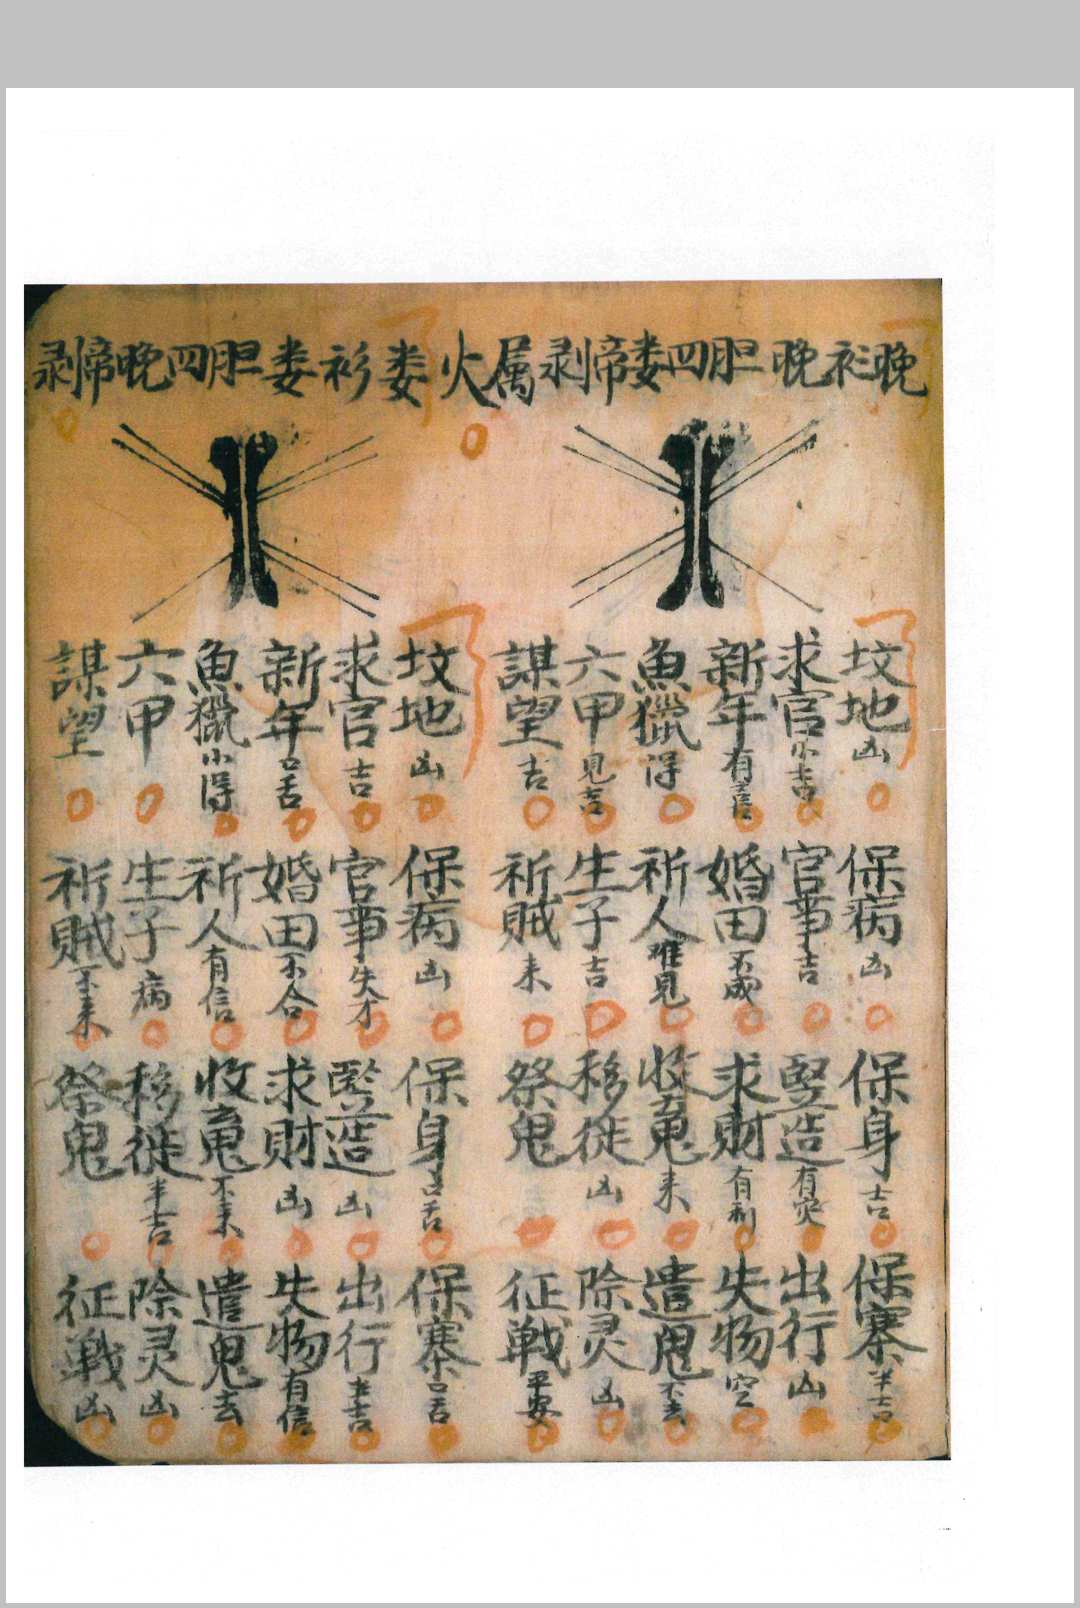 晚衫晚胆四娄啼剥属火
坟地凶
保病凶
保身吉
保寨半吉
求官小吉
官事吉
竪造有灾
出行凶
新年有吉信
婚田不成
求財有利
失物空
魚獵得
祈人难見
收䰟来
遣鬼不去
六甲見吉
生子吉
移徙凶
除灵凶
謀望吉
祈賊未
祭鬼
征戦平安
娄衫娄胆四晚啼剥
坟地凶
保病凶
保身口舌
保寨口舌
求官吉
官事失才
竪造凶
出行半吉
新年口舌
婚田不合
求財凶
失物有信
魚獵小得
祈人有信
收䰟不来
遣鬼去
六甲
生子病
移徙半吉
除灵凶
謀望
祈賊不来
祭鬼
征戦凶